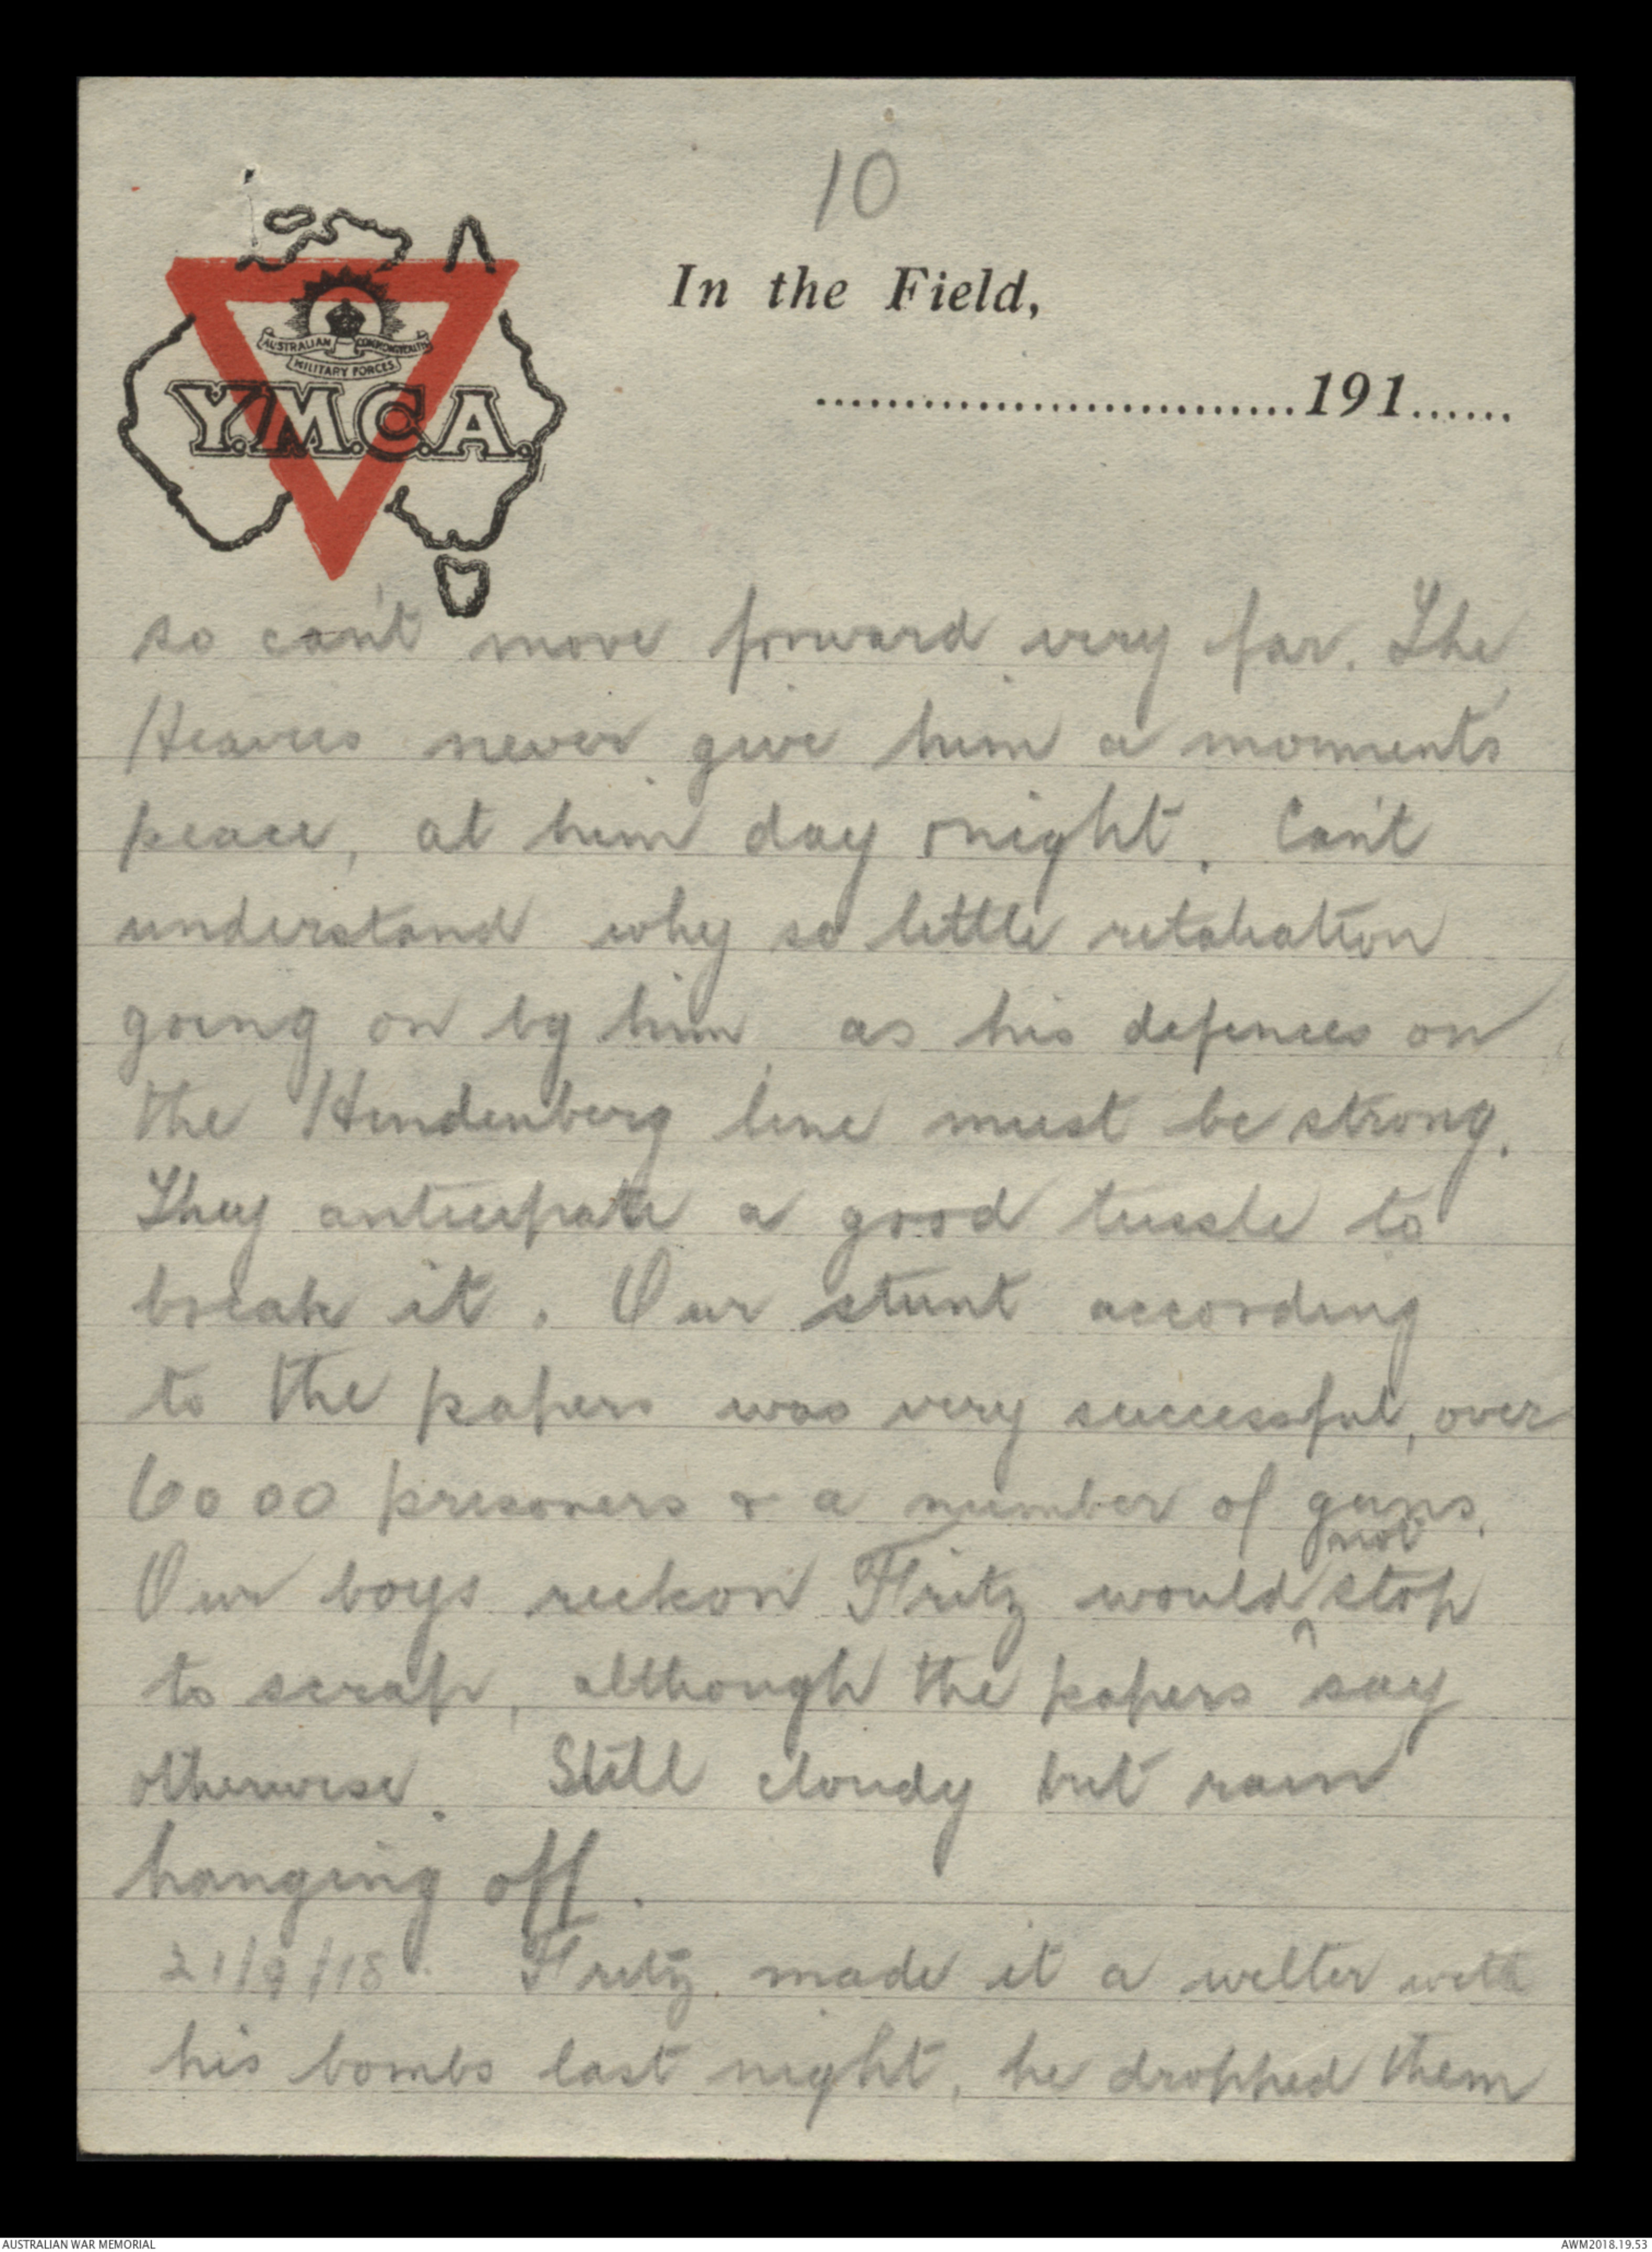 10
In the Field,
AUSTRALIAN COMMONWEALTH
MILITARY FORCES
Y.M.C.A.
..............................191......
so can't move forward very far. The
Heavies never give him a moments
peace, at him day & night. Can't
understand why so little retaliation
going on by him, as his defences on
the Hindenberg line must be strong.
They anticipate a good tussle to
break it. Our stunt according
to the papers was very successful, over
6000 prisoners & a number of guns.
Our boys reckon Fritz would ^not stop
to scrap, although the papers say
otherwise. Still cloudy but rain
hanging off.
21/9/18. Fritz made it a welter with
his bombs last night, he dropped them
AUSTRALIAN WAR MEMORIAL
AWM2018.19.53